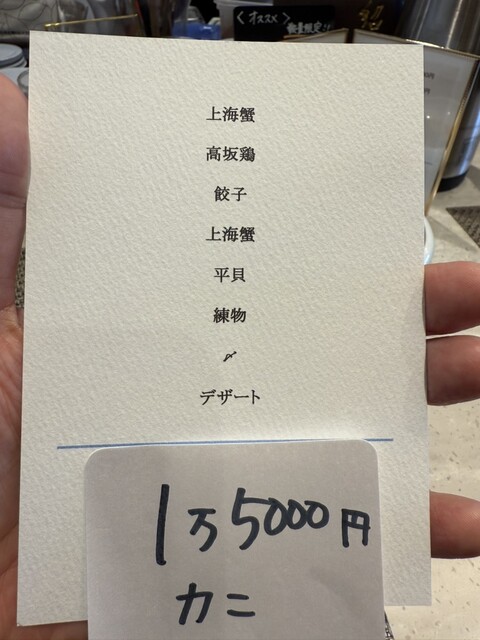 〈オススメ〉
数量限定
上海蟹
高坂鶏
餃子
上海蟹
平貝
練物
〆
デザート
1万5000円
カニ